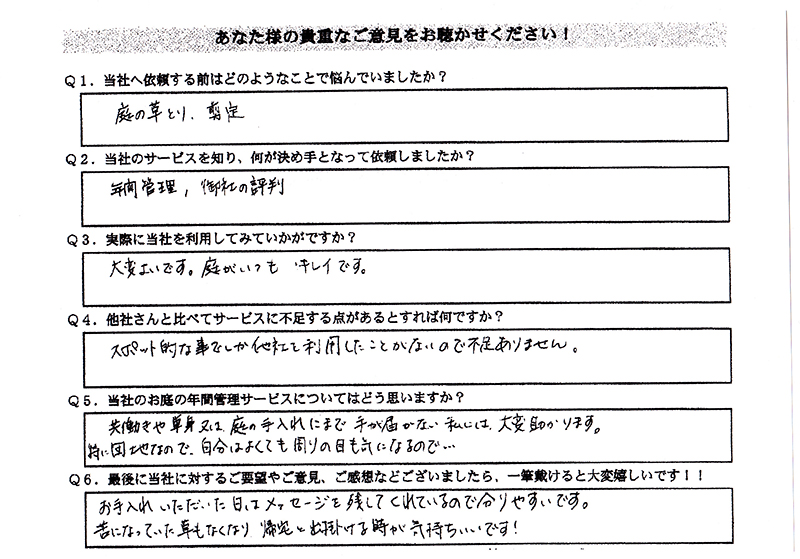 あなた様の貴重なご意見をお聴かせください！
Ｑ１．当社へ依頼する前はどのようなことで悩んでいましたか？
庭の草とり、剪定
Ｑ２．当社のサービスを知り、何が決め手となって依頼しましたか？
年間管理，御社の評判
Ｑ３．実際に当社を利用してみていかがですか？
大変よいです。庭がいつも キレイです。
Ｑ４．他社さんと比べてサービスに不足する点があるとすれば何ですか？
スポット的な事でしか他社を利用したことがないので不足ありません。
Ｑ５．当社のお庭の年間管理サービスについてはどう思いますか？
共働きや単身又は、庭の手入れにまで 手が届かない私には、大変助かります。
特に団地なので、自分はよくても周りの目も気になるので…
Ｑ６．最後に当社に対するご要望やご意見、ご感想などございましたら、一筆戴けると大変嬉しいです！！
お手入れいただいた日はメッセージを残してくれているので分りやすいです。
苦になっていた草もなくなり 帰宅と出掛ける時が気持ちいいです！